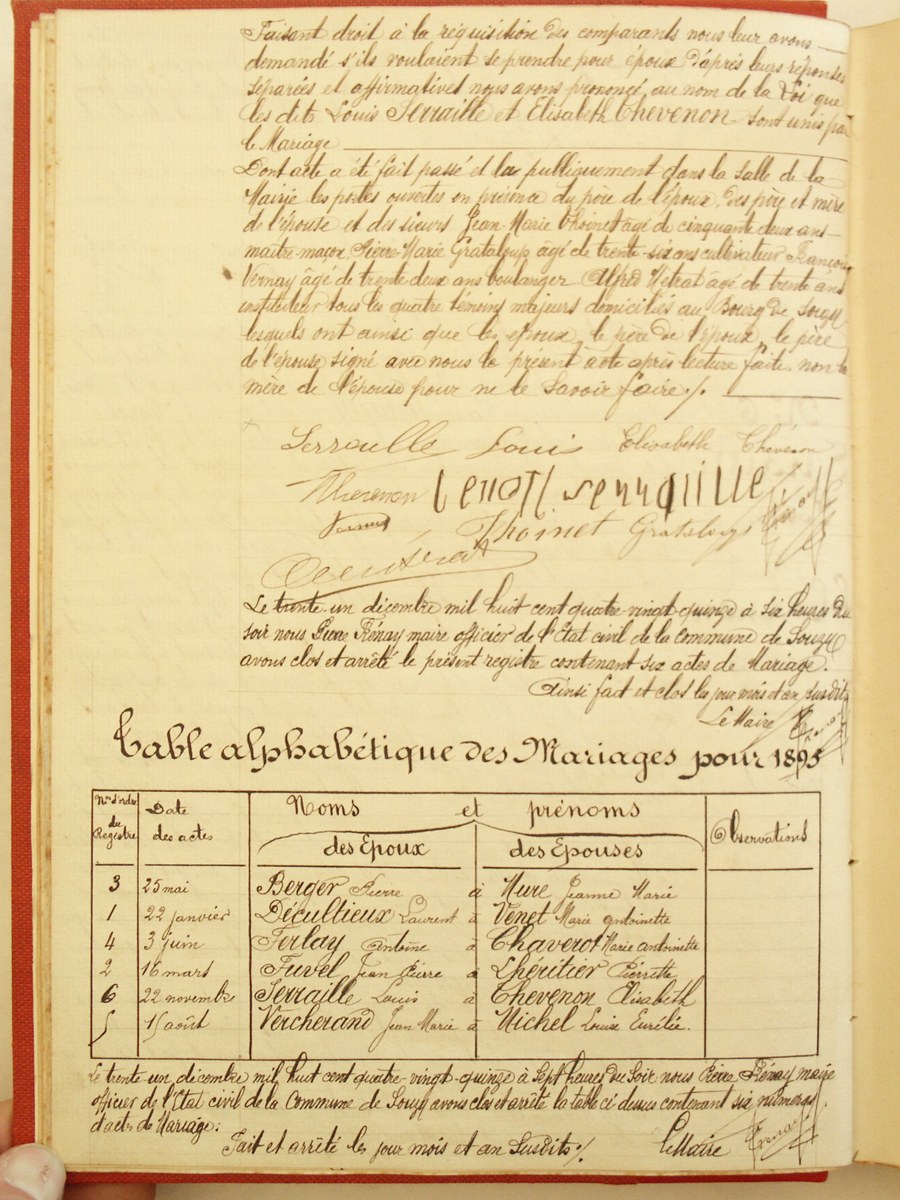 Faisant droit à la réquisition des comparants nous leur avons
demandé s'ils voulaient se prendre pour époux D'après leurs réponses
séparées et affirmatives nous avons prononcé au nom de la Loi que
les dits Louis Serraille et Elisabeth Chevenon sont unis par
le Mariage
Dont acte a été fait passé et lu publiquement dans la salle de la
Mairie les portes ouvertes en présence du père de l'époux, des père et mère
de l'épouse et des sieurs Jean-Marie Thoinet âgé de cinquante deux ans
maître-maçon, Pierre-Marie Grataloup âgé de trente-six ans cultivateur François
Vernay âgé de trente deux ans boulanger Alfred Métrat âgé de trente ans
instituteur tous les quatre témoins majeurs domiciliés au Bourg de Souzy
lesquels ont ainsi que les époux, le père de l'époux, le père
de l'épouse signé avec nous le présent acte après lecture faite non la
mère de l'épouse pour ne le savoir faire ./.
Serraille Louis Elisabeth Chevenon
Chevenon benoît serraille
Vernay Thoinet Grataloup
Le trente-un décembre mil huit cent quatre-vingt-quinze à six heures du
soir nous Pierre Rénay maire officier de l'Etat civil de la commune de Souzy
avons clos et arrêté le présent registre contenant six actes de Mariage.
Ainsi fait et clos les jour mois et an susdits
Le Maire
Table alphabétique des Mariages pour 1895
Nos d'ordre du Registre
Date des actes
Noms et prénoms
des Epoux
des Epouses
Observations
3 25 mai Berger Pierre à Mure Jeanne Marie
1 22 janvier Décultieux Laurent à Venet Marie antoinette
4 3 juin Ferlay Antoine à Chaverot Marie antoinette
2 16 mars Fuvel Jean Pierre à Lhéritier Pierrette
6 22 novembre Serraille Louis à Chevenon Elisabeth
5 15 août Vercherand Jean Marie à Michel Louise Eurélie.
Le trente-un décembre mil huit cent quatre-vingt-quinze à sept heures du soir nous Pierre Rénay maire
officier de l'Etat civil de la Commune de Souzy avons clos et arrêté la table ci dessus contenant six numéros
d'actes de Mariage.
Fait et arrêté les jour mois et an susdits ./. Le Maire